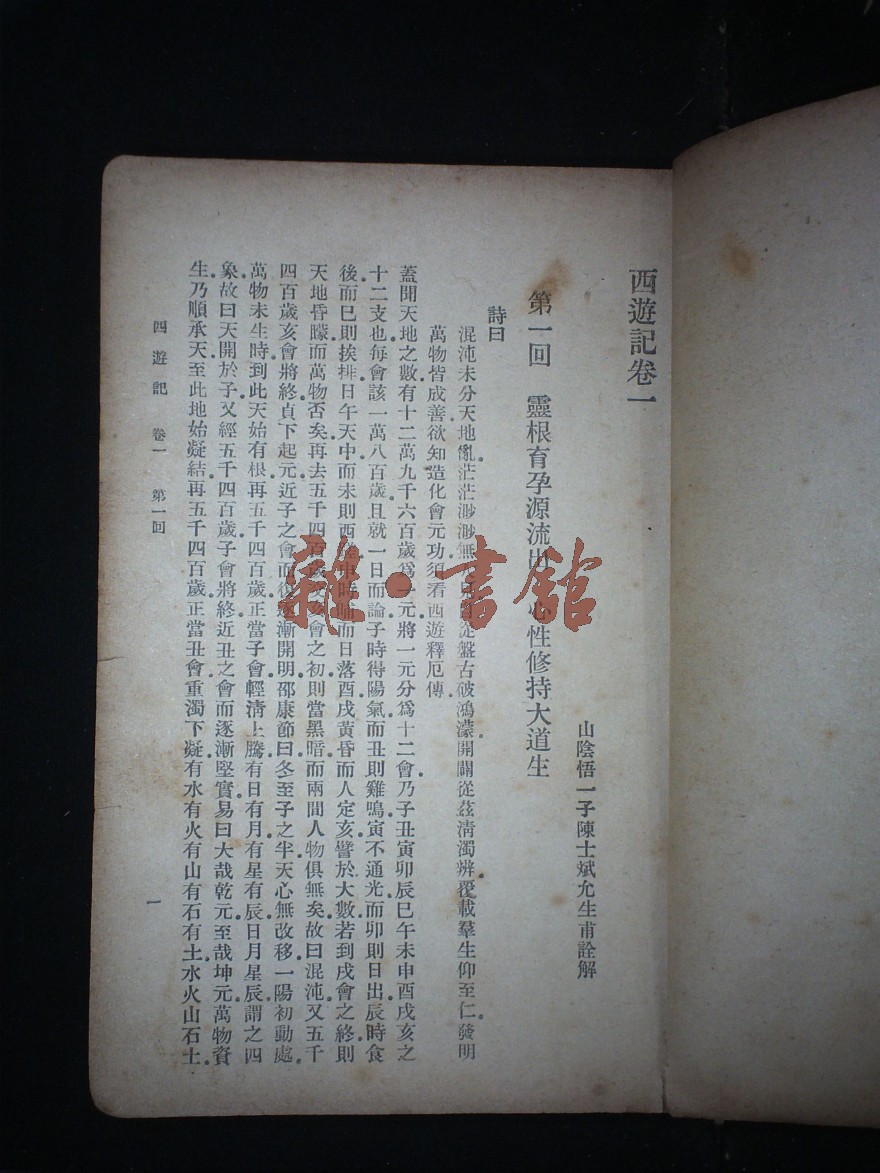 西遊記卷一
山陰悟一子陳士斌允生甫詮解
第一回 靈根育孕源流出 心性修持大道生
詩曰
混沌未分天地亂茫茫渺渺無 盤古破鴻濛開闢從茲清濁辨覆載羣生仰至仁發明
萬物皆成善欲知造化會元功須看西遊釋厄傳
蓋聞天地之數有十二萬九千六百歲爲一元將一元分爲十二會乃子丑寅卯辰巳午未申酉戌亥之
十二支也每會該一萬八百歲且就一日而論子時得陽氣而丑則雞鳴寅不通光而卯則日出辰時食
後而巳則挨排日午天中而未則西 申時晡而日落酉戌黃昏而人定亥譬於大數若到戌會之終則
天地昏矇而萬物否矣再去五千四百歲交亥會之初則當黑暗而兩間人物俱無矣故曰混沌又五千
四百歲亥會將終貞下起元近子之會而復逐漸開明邵康節曰冬至子之半天心無改移一陽初動處
萬物未生時到此天始有根再五千四百歲正當子會輕清上騰有日有月有星有辰日月星辰謂之四
象故曰天開於子又經五千四百歲子會將終近丑之會而逐漸堅實易曰大哉乾元至哉坤元萬物資
生乃順承天至此地始凝結再五千四百歲正當丑會重濁下凝有水有火有山有石有土水火山石土
西遊記 卷一 第一回 一
雜·書館